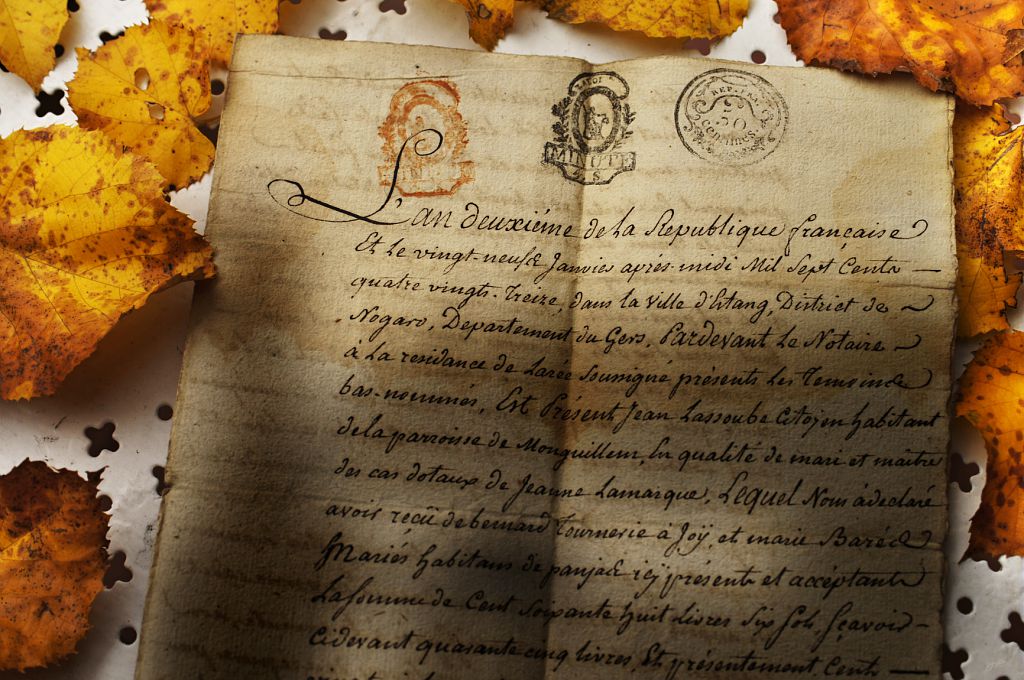 LA LOI
MINUTE
4 S.
REP. FRA.
50
centimes
L'an deuxiéme de la Republique française
Et le vingt-neuf Janvier aprés-midi Mil Sept Cents
quatre vingt-treize, dans la ville d'Estang, District de
Nogaro, Departement du Gers, Pardevant Le Notaire
à La residance de Larée Soussigné présents Les Temoins
bas-nommés, Est Présent Jean Lassoube Citoyen habitant
de la parroisse de Monguillem, En qualité de mari et maitre
des cas dotaux de Jeanne Lamarque, Lequel Nous à declaré
avoir reçü de bernard Tournerie à Joÿ, et marie Barés
Mariés habitans de panjas icÿ présents et accéptants
La somme de Cent Soixante huit Livres Six Sols, Sçavoir
Cidevant quarante cinq livres, Et présentement Cent